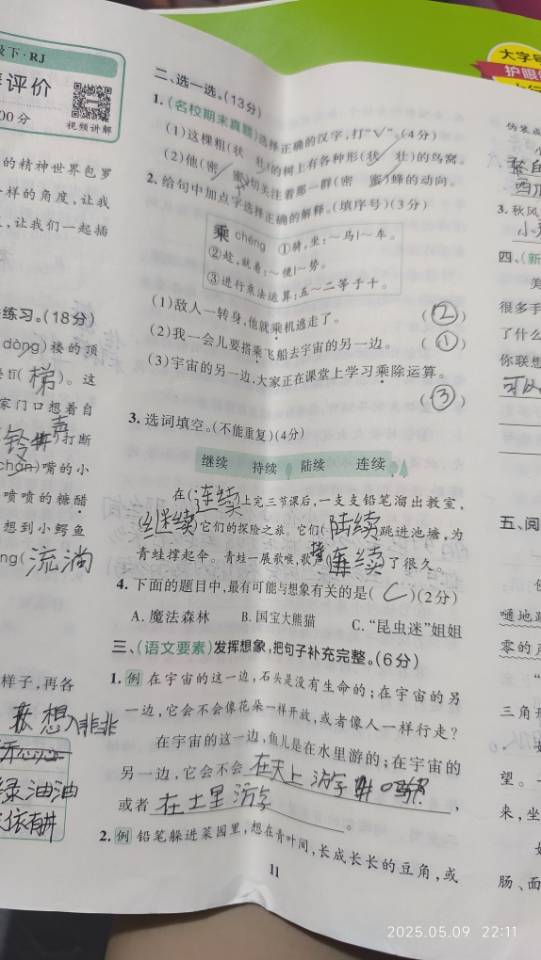 级下·RJ
评价
00分
视频讲解
的精神世界包罗
样的角度,让我
,让我们一起插
练习。(18分)
dòng)楼的顶
tī(梯)。这
家门口想着自
打断
嘴的小
喷喷的糖醋
想到小鳄鱼
ng(流淌
样子,再各
想入非非
绿油油
二、选一选。(13分)
1.(名校期末真题)选择正确的汉字,打“√”。(4分)
(1)这棵粗(状 壮)的树上有各种形(状 壮)的鸟窝。
(2)他(密 蜜)切关注着那一群(密 蜜)蜂的动向。
2.给句中加点字选择正确的解释。(填序号)(3分)
乘 chéng ①骑,坐:~马|~车。
②趁,就着:~便|~势。
③进行乘法运算:五~二等于十。
(1)敌人一转身,他就乘机逃走了。 (②)
(2)我一会儿要搭乘飞船去宇宙的另一边。 (①)
(3)宇宙的另一边,大家正在课堂上学习乘除运算。
(③)
3.选词填空。(不能重复)(4分)
继续 持续 陆续 连续
在(连续)上完三节课后,一支支铅笔溜出教室,
(继续)它们的探险之旅。它们(陆续)跳进池塘,为
青蛙撑起伞。青蛙一展歌喉,歌声 续了很久。
4.下面的题目中,最有可能与想象有关的是( C )(2分)
A.魔法森林 B.国宝大熊猫 C.“昆虫迷”姐姐
三、(语文要素)发挥想象,把句子补充完整。(6分)
1.例 在宇宙的这一边,石头是没有生命的;在宇宙的另
一边,它会不会像花朵一样开放,或者像人一样行走?
在宇宙的这一边,鱼儿是在水里游的;在宇宙的
另一边,它会不会在天上游,
或者在土里游。
2.例 铅笔躲进菜园里,想在青叶间,长成长长的豆角,或
11
大字号
护眼
伪装
3.秋风
四、(新
很多手
了什么
你联想
可以
五、阅
嗵地
零的
三角
望。一
来,坐
肠、面
2025.05.09 22:11